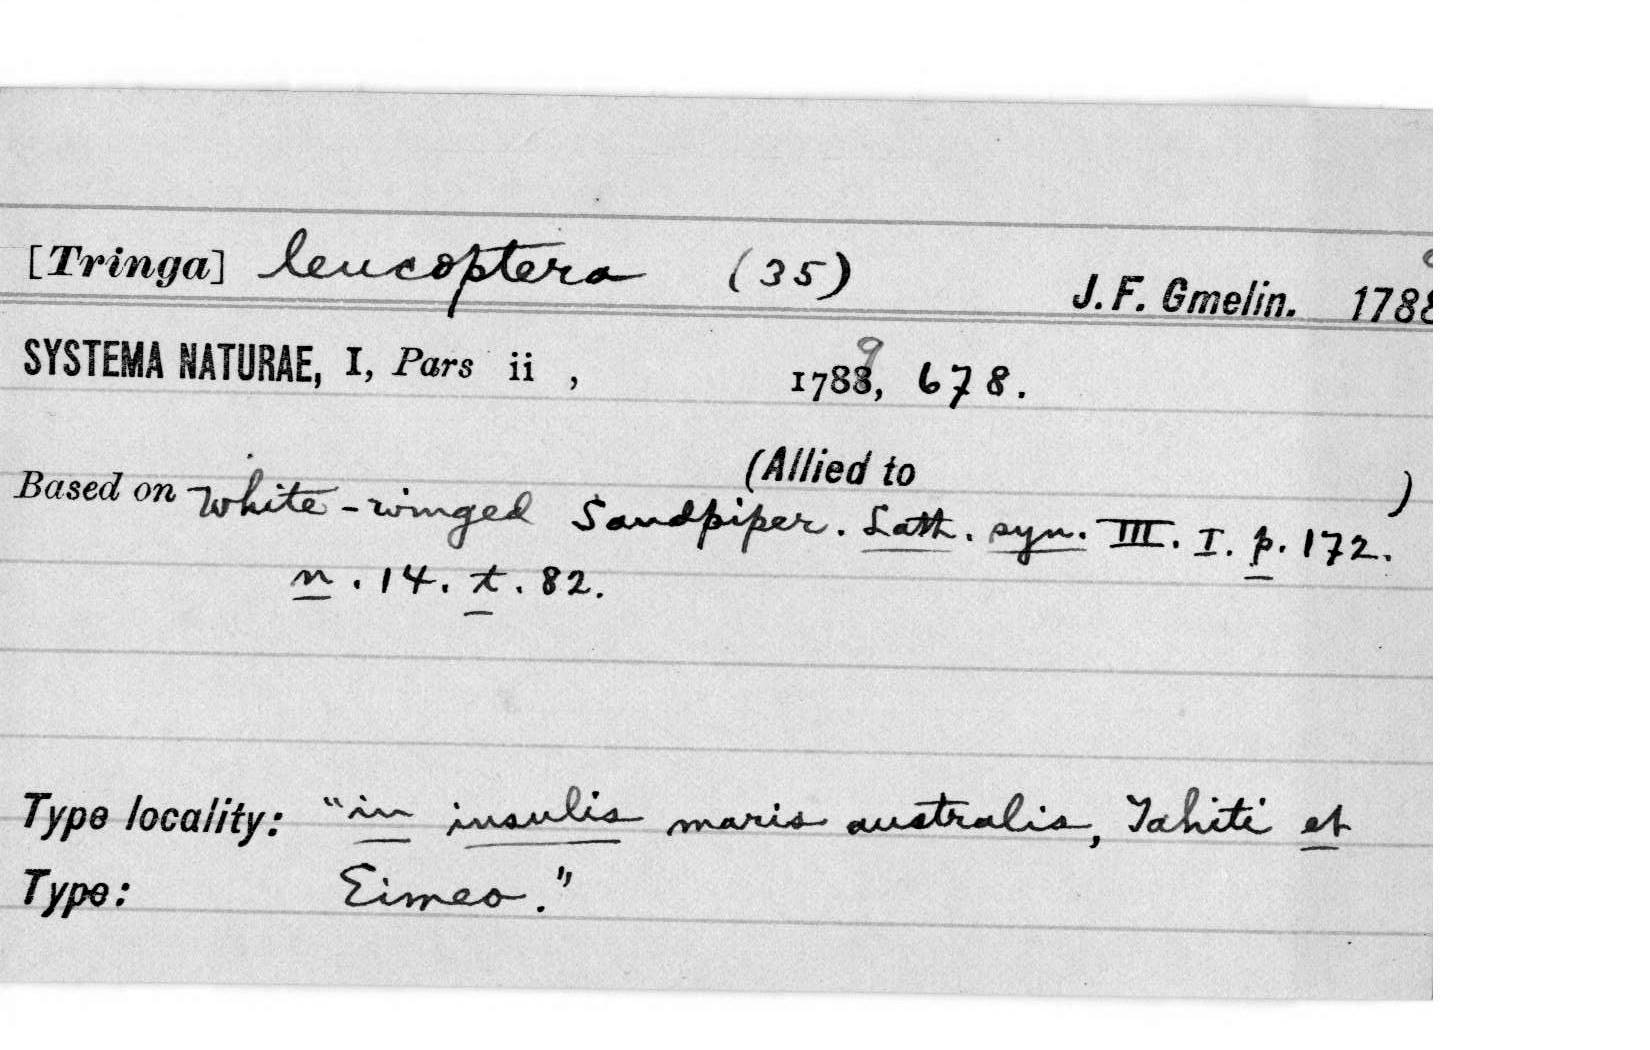 [Tringa] leucoptera (35) J. F. Gmelin. 1788
SYSTEMA NATURAE, I, Pars ii , 1788, 9 678.
(Allied to )
Based on White-winged Sandpiper. Lath. syn. III. I. p. 172.
n. 14. t. 82.
Type locality: "in insulis maris australis, Tahiti et
Type: Eimeo."